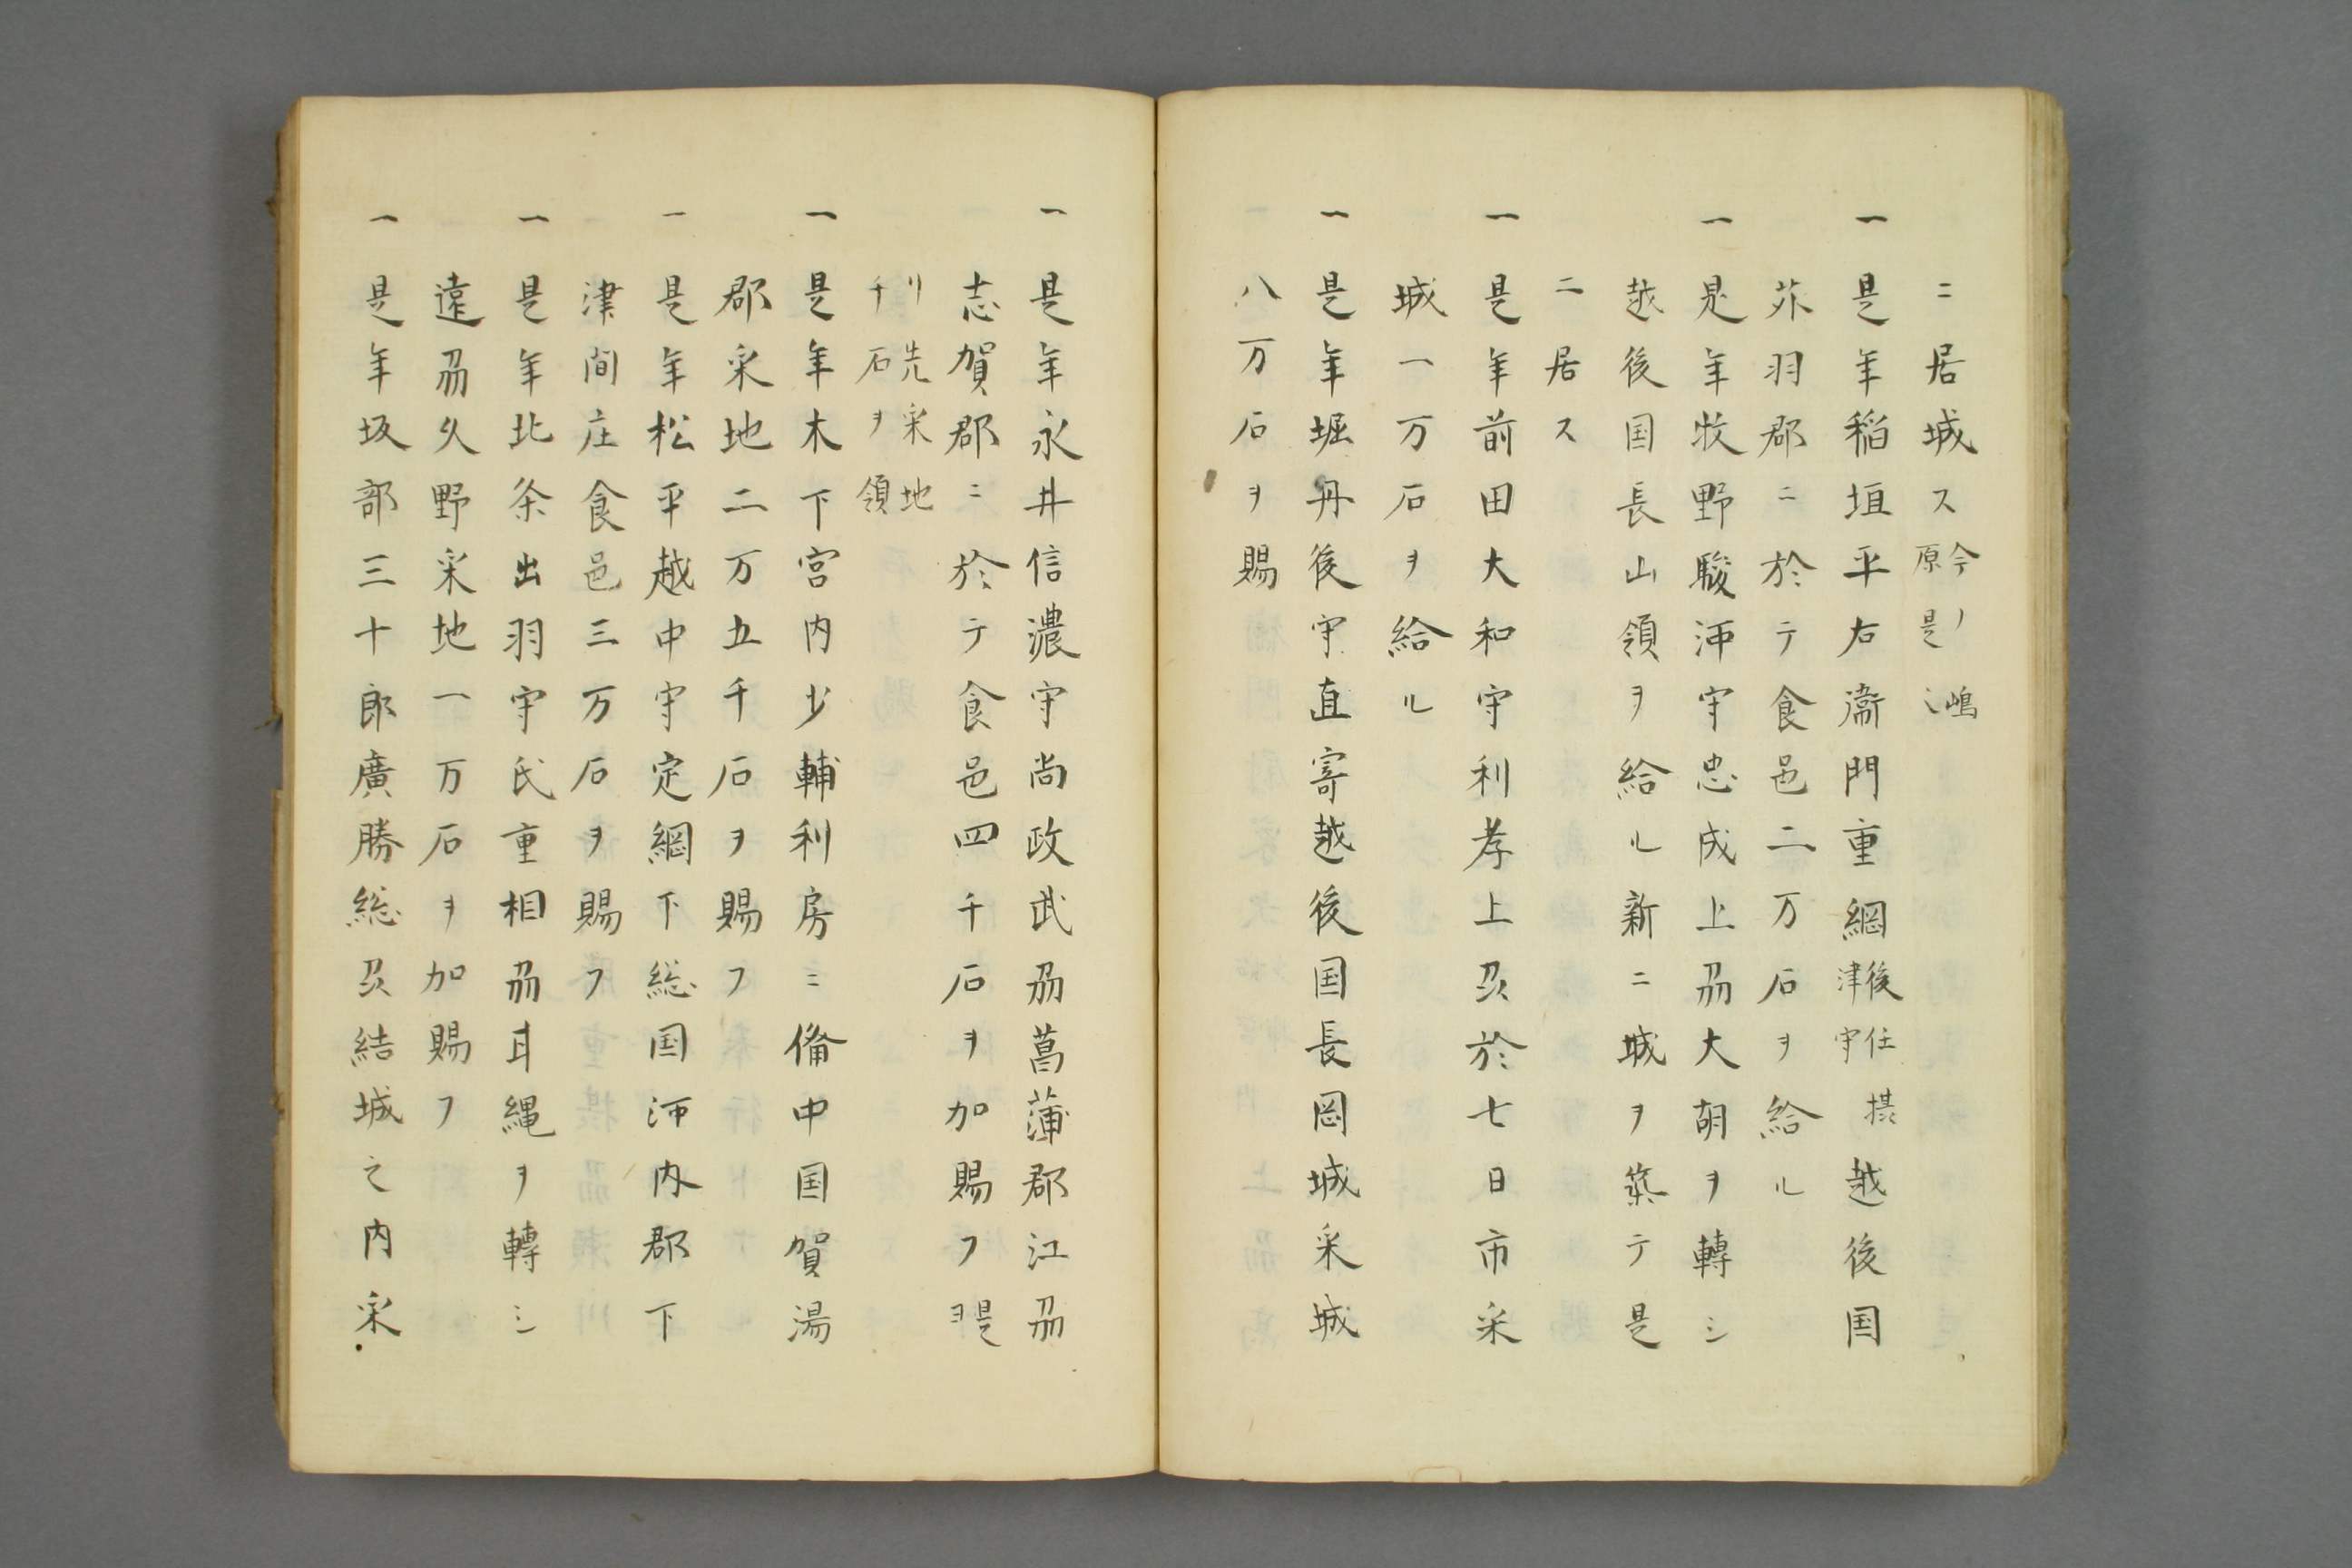 ニ居城ス今ノ嶋原是〻
一是年稲垣平右衛門重綱後任摂津守越後国
苅羽郡ニ於テ食邑二万石ヲ給ル
一是年牧野駿河守忠成上刕大胡ヲ轉シ
越後国長山領ヲ給ル新ニ城ヲ築テ是
二居ス
一是年前田大和守利孝上刕於七日市采
城一万石ヲ給ル
一是年堀丹後守直寄越後国長岡城采城
八万石ヲ賜
一是年永井信濃守尚政武刕菖蒲郡江刕
志賀郡ニ於テ食邑四千石ヲ加賜フ是ヨ
リ先采地千石ヲ領
一是年木下宮内少輔利房ニ備中国賀湯
郡采地二万五千石ヲ賜フ
一是年松平越中守定綱下総国河内郡下
津間庄食邑三万石ヲ賜フ
一是年北条出羽守氏重相刕甘縄ヲ轉シ
遠刕久野采地一万石ヲ加賜フ
一是年坂部三十郎廣勝総刕結城之内采